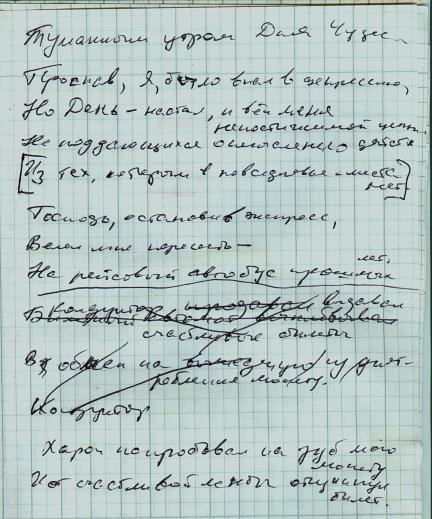 Туманным утром Дня Чудес
Проснев, я, было впал в депрессию,
Но День – настал, и вёл меня
непостижимой цепью
Не поддающихся осмыслению действ
[Из тех, которым в повседневье места
нет]
Господь, остановив экспресс,
Велел мне пересесть –
лет,
На рейсовый автобус прошлых
Кондуктор продавал выдавал
счастливые билеты
В обмен на
ребления монету.
Кондуктор
Харон попробовал на зуб мою
монету
И от счастливой ленты отщипнул
билет.